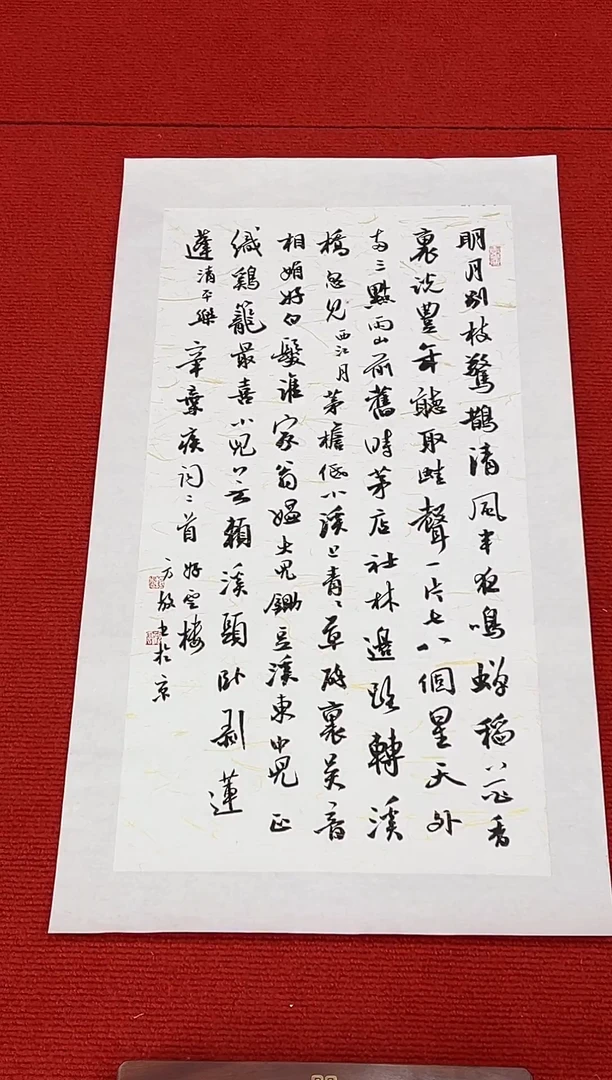 明月別枝驚鵲清風半夜鳴蟬稻花香
裏說豐年聽取蛙聲一片七八個星天外
两三點雨山前舊時茅店社林邊路轉溪
橋忽見西江月茅檐低小溪上青〻草醉裏吴音
相媚好白髮誰家翁媪大兒鋤豆溪東中兒正
織鷄籠最喜小兒亡賴溪頭卧剥蓮
蓬清平樂辛棄疾詞二首好雲樓
方书於京